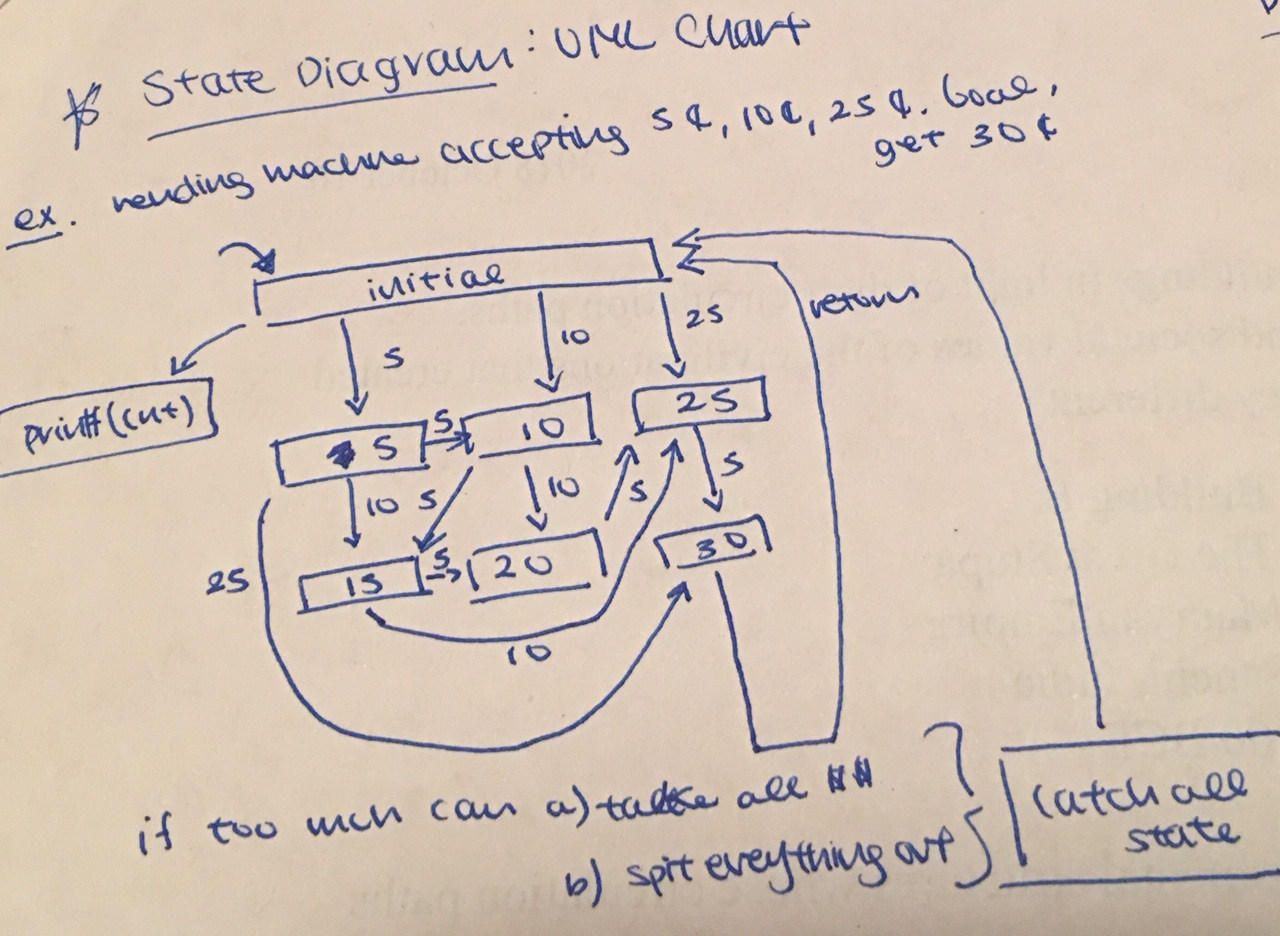 State Diagram: UML Chart
ex. vending machine accepting 5¢, 10¢, 25¢. Goal,
get 30¢
initial
5
10
25
return
printf(cnt)
5
5
10
25
5
10
5
10
5
25
15
5
20
30
10
if too much can a) take all
b) spit everything out
Catch all
state